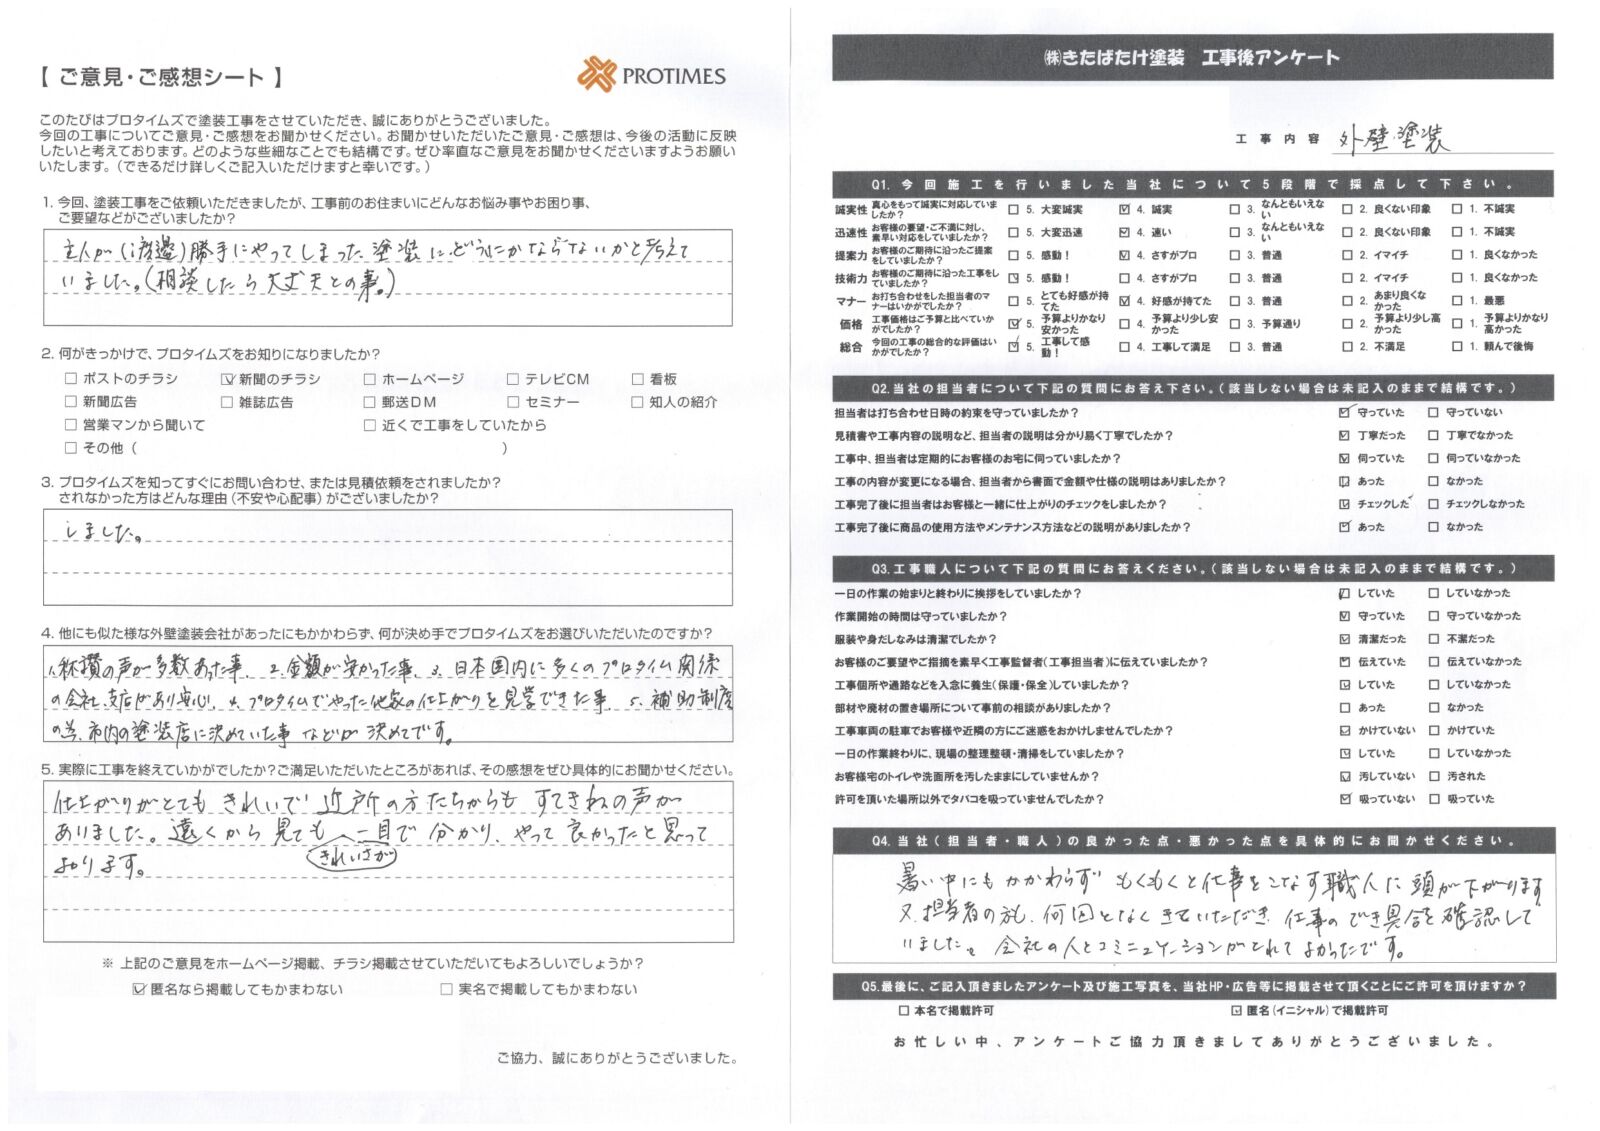 【 ご意見・ご感想シート 】
PROTIMES
このたびはプロタイムズで塗装工事をさせていただき、誠にありがとうございました。
今回の工事についてご意見・ご感想をお聞かせください。お聞かせいただいたご意見・ご感想は、今後の活動に反映
したいと考えております。どのような些細なことでも結構です。ぜひ率直なご意見をお聞かせくださいますようお願い
いたします。（できるだけ詳しくご記入いただけますと幸いです。）
1. 今回、塗装工事をご依頼いただきましたが、工事前のお住まいにどんなお悩み事やお困り事、
ご要望などがございましたか?
主人が（渡邉）勝手にやってしまった塗装に、どうにかならないかと考えて
いました。（相談したら大丈夫との事。）
2. 何がきっかけで、プロタイムズをお知りになりましたか?
□ ポストのチラシ ☑ 新聞のチラシ □ ホームページ □ テレビCM □ 看板
□ 新聞広告 □ 雑誌広告 □ 郵送DM □ セミナー □ 知人の紹介
□ 営業マンから聞いて □ 近くで工事をしていたから
□ その他（ ）
3. プロタイムズを知ってすぐにお問い合わせ、または見積依頼をされましたか?
されなかった方はどんな理由（不安や心配事）がございましたか?
しました。
4. 他にも似た様な外壁塗装会社があったにもかかわらず、何が決め手でプロタイムズをお選びいただいたのですか?
1、称讃の声が多数あった事、2、金額が安かった事、3、日本国内に多くのプロタイム関係
の会社、支店があり安心、4、プロタイムでやった他家の仕上がりを見学できた事、5、補助制度
の為、市内の塗装店に決めていた事 などが 決めてです。
5. 実際に工事を終えていかがでしたか?ご満足いただいたところがあれば、その感想をぜひ具体的にお聞かせください。
仕上がりがとても きれいで 近所の方たちからも すてきねの声が
ありました。遠くから見ても きれいさが 一目で分かり、やって良かったと思って
おります。
※ 上記のご意見をホームページ掲載、チラシ掲載させていただいてもよろしいでしょうか?
☑ 匿名なら掲載してもかまわない □ 実名で掲載してもかまわない
ご協力、誠にありがとうございました。
㈱きたばたけ塗装 工事後アンケート
工事内容 外壁塗装
Q1. 今回施工を行いました当社について5段階で採点して下さい。
誠実性 真心をもって誠実に対応していましたか? □ 5. 大変誠実 ☑ 4. 誠実 □ 3. なんともいえない □ 2. 良くない印象 □ 1. 不誠実
迅速性 お客様の要望・ご不満に対し、素早い対応をしていましたか? □ 5. 大変迅速 ☑ 4. 速い □ 3. なんともいえない □ 2. 良くない印象 □ 1. 不誠実
提案力 お客様のご期待に沿ったご提案をしていましたか? □ 5. 感動! ☑ 4. さすがプロ □ 3. 普通 □ 2. イマイチ □ 1. 良くなかった
技術力 お客様のご期待に沿った工事をしていましたか? ☑ 5. 感動! □ 4. さすがプロ □ 3. 普通 □ 2. イマイチ □ 1. 良くなかった
マナー お打ち合わせをした担当者のマナーはいかがでしたか? □ 5. とても好感が持てた ☑ 4. 好感が持てた □ 3. 普通 □ 2. あまり良くなかった □ 1. 最悪
価格 工事価格はご予算と比べていかがでしたか? ☑ 5. 予算よりかなり安かった □ 4. 予算より少し安かった □ 3. 予算通り □ 2. 予算より少し高かった □ 1. 予算よりかなり高かった
総合 今回の工事の総合的な評価はいかがでしたか? ☑ 5. 工事して感動! □ 4. 工事して満足 □ 3. 普通 □ 2. 不満足 □ 1. 頼んで後悔
Q2. 当社の担当者について下記の質問にお答え下さい。（該当しない場合は未記入のままで結構です。）
担当者は打ち合わせ日時の約束を守っていましたか? ☑ 守っていた □ 守っていない
見積書や工事内容の説明など、担当者の説明は分かり易く丁寧でしたか? ☑ 丁寧だった □ 丁寧でなかった
工事中、担当者は定期的にお客様のお宅に伺っていましたか? ☑ 伺っていた □ 伺っていなかった
工事の内容が変更になる場合、担当者から書面で金額や仕様の説明はありましたか? ☑ あった □ なかった
工事完了後に担当者はお客様と一緒に仕上がりのチェックをしましたか? ☑ チェックした □ チェックしなかった
工事完了後に商品の使用方法やメンテナンス方法などの説明がありましたか? ☑ あった □ なかった
Q3. 工事職人について下記の質問にお答えください。（該当しない場合は未記入のままで結構です。）
一日の作業の始まりと終わりに挨拶をしていましたか? ☑ していた □ していなかった
作業開始の時間は守っていましたか? ☑ 守っていた □ 守っていなかった
服装や身だしなみは清潔でしたか? ☑ 清潔だった □ 不潔だった
お客様のご要望やご指摘を素早く工事監督者（工事担当者）に伝えていましたか? ☑ 伝えていた □ 伝えていなかった
工事個所や通路などを入念に養生（保護・保全）していましたか? ☑ していた □ していなかった
部材や廃材の置き場所について事前の相談がありましたか? □ あった □ なかった
工事車両の駐車でお客様や近隣の方にご迷惑をおかけしませんでしたか? ☑ かけていない □ かけていた
一日の作業終わりに、現場の整理整頓・清掃をしていましたか? ☑ していた □ していなかった
お客様宅のトイレや洗面所を汚したままにしていませんか? ☑ 汚していない □ 汚された
許可を頂いた場所以外でタバコを吸っていませんでしたか? ☑ 吸っていない □ 吸っていた
Q4. 当社（担当者・職人）の良かった点・悪かった点を具体的にお聞かせください。
暑い中にもかかわらず もくもくと仕事をこなす職人に頭が下がります
又、担当者の方も、何回となくきていただき、仕事のでき具合を確認して
いました。会社の人とコミニュケーションがとれてよかったです。
Q5. 最後に、ご記入頂きましたアンケート及び施工写真を、当社HP・広告等に掲載させて頂くことにご許可を頂けますか?
□ 本名で掲載許可 ☑ 匿名（イニシャル）で掲載許可
お忙しい中、アンケートご協力頂きましてありがとうございました。